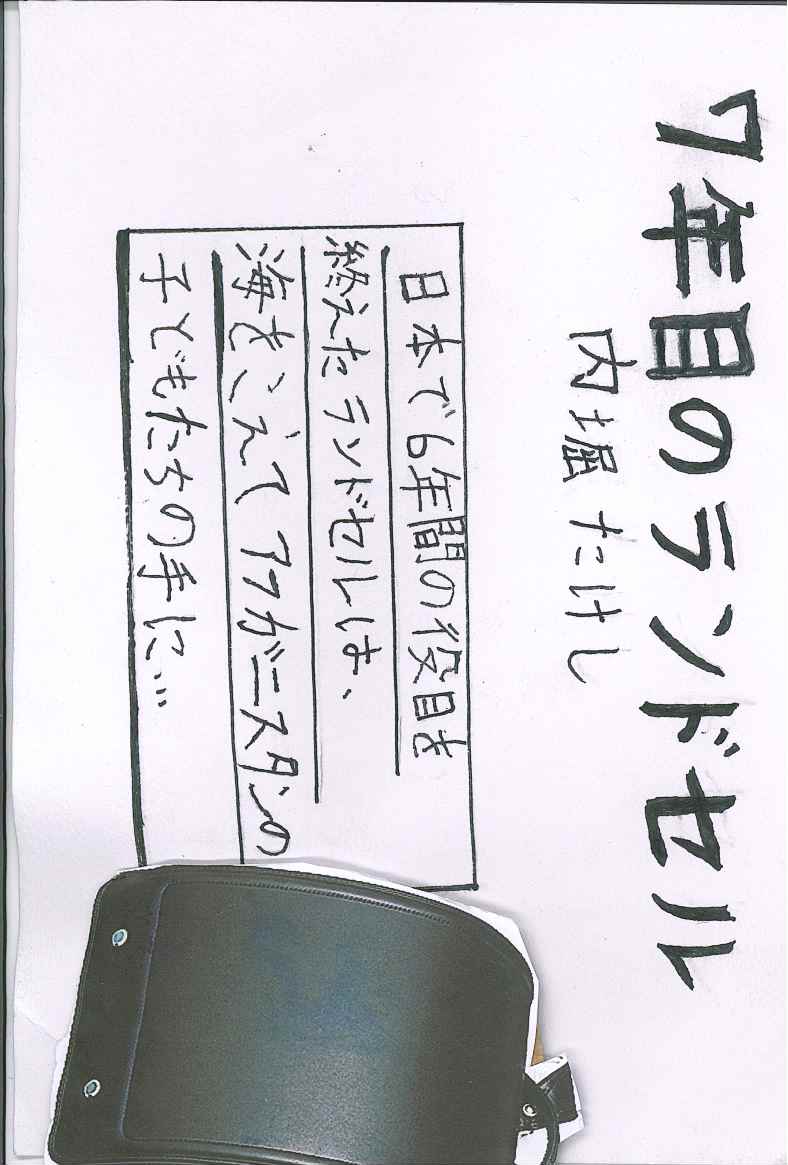 7年目のランドセル
内堀たけし
日本で6年間の役目を
終えたランドセルは、
海をこえてアフガニスタンの
子どもたちの手に…